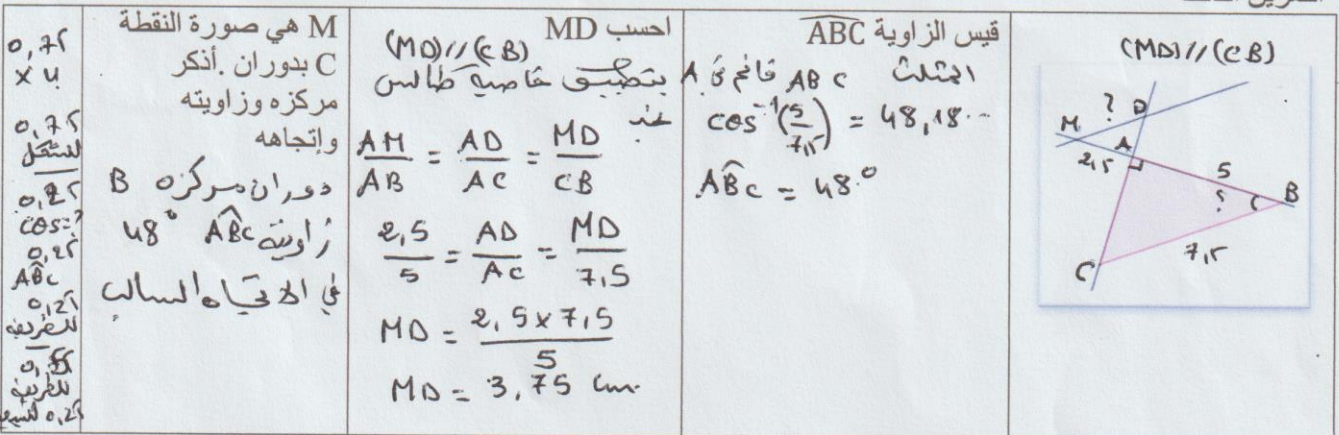 (MD)//(CB)
M
?
D
A
2,5
5
?
B
7,5
C
قيس الزاوية ABC
المثلث ABC قائم في A
cos⁻¹(5/7,5) = 48,18...
ABC = 48°
احسب MD
(MD)//(CB)
بتطبيق خاصية طالس
نجد
AM/AB = AD/AC = MD/CB
2,5/5 = AD/AC = MD/7,5
MD = 2,5 x 7,5/5
MD = 3,75 cm
M هي صورة النقطة
C بدوران .أذكر
مركزه وزاويته
وإتجاهه
دوران مركزه B
زاويته ABC 48°
في الاتجاه السالب
0,75
x 4
0,75
للشكل
0,25
cos=?
0,25
ABC
0,25